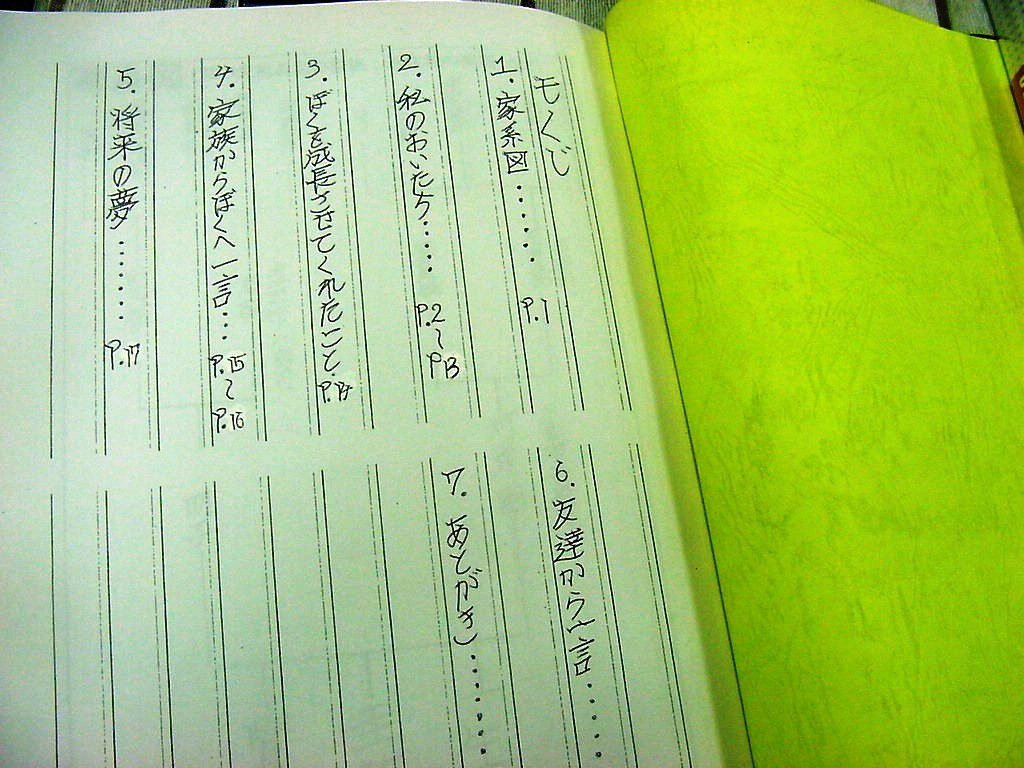 もくじ
1.家系図・・・・・・P.1
2.私のおいたち・・・・・P.2〜P13
3.ぼくを成長させてくれたことP.14
4.家族からぼくへ一言・・・P.15〜P.16
5.将来の夢・・・・・・・P.17
6.友達から一言・・・・・
7.あとがき・・・・・・・